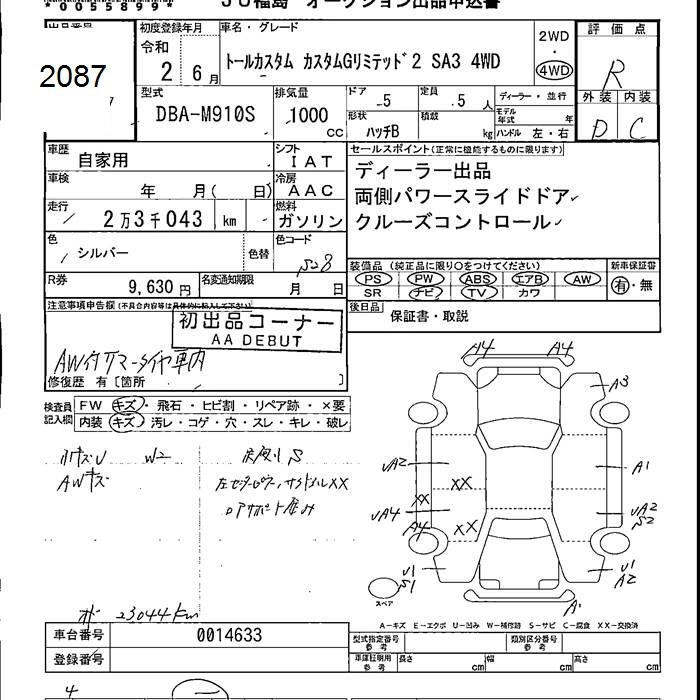 *0055899*
JU福島 オークション出品申込書
出品番号
2087
初度登録年月
令和
2 6月
車名・グレード
トールカスタム カスタムGリミテッド2 SA3 4WD
2WD
・
4WD
評価点
R
外装 内装
D C
型式
DBA-M910S
排気量
1000
CC
ドア
5
定員
5人
ディーラー・並行
モデル年式 年
形状
ハッチB
積載
kg
ハンドル 左・右
車歴
自家用
シフト
IAT
セールスポイント(正常に機能するものに限ります)
ディーラー出品
両側パワースライドドア
クルーズコントロール
車検
年 月( 日)
冷房
AAC
走行
2万3千043 km
燃料
ガソリン
色
シルバー
色替
色コード
S28
装備品(純正品に限り○をつけてください)
PS PW ABS エアB AW
SR ナビ TV カワ
新車保証書
有・無
R券
9,630円
名変通知期限
月 日
後日品
保証書・取説
注意事項申告欄(不具合内容等は具体的に記入して下さい)
初出品コーナー
AA DEBUT
AW付サマータイヤ車内
修復歴 有〔箇所 〕
検査員記入欄
FW キズ・飛石・ヒビ割・リペア跡・×要
内装 キズ・汚レ・コゲ・穴・スレ・キレ・破レ
W2
S
AWキズ
XX
A4 A4
A3
UA2
A1
XX
XX
UA4
A4
XX
UA2
S2
U1
S1
U1
A2
A1
スペア
23044km
A-キズ E-エクボ U-凹み W-補修跡 S-サビ C-腐食 XX-交換済
車台番号
0014633
型式指定番号
参考
類別区分番号
参考
登録番号
車庫証明用
参考
長さ cm
幅 cm
高さ cm
4